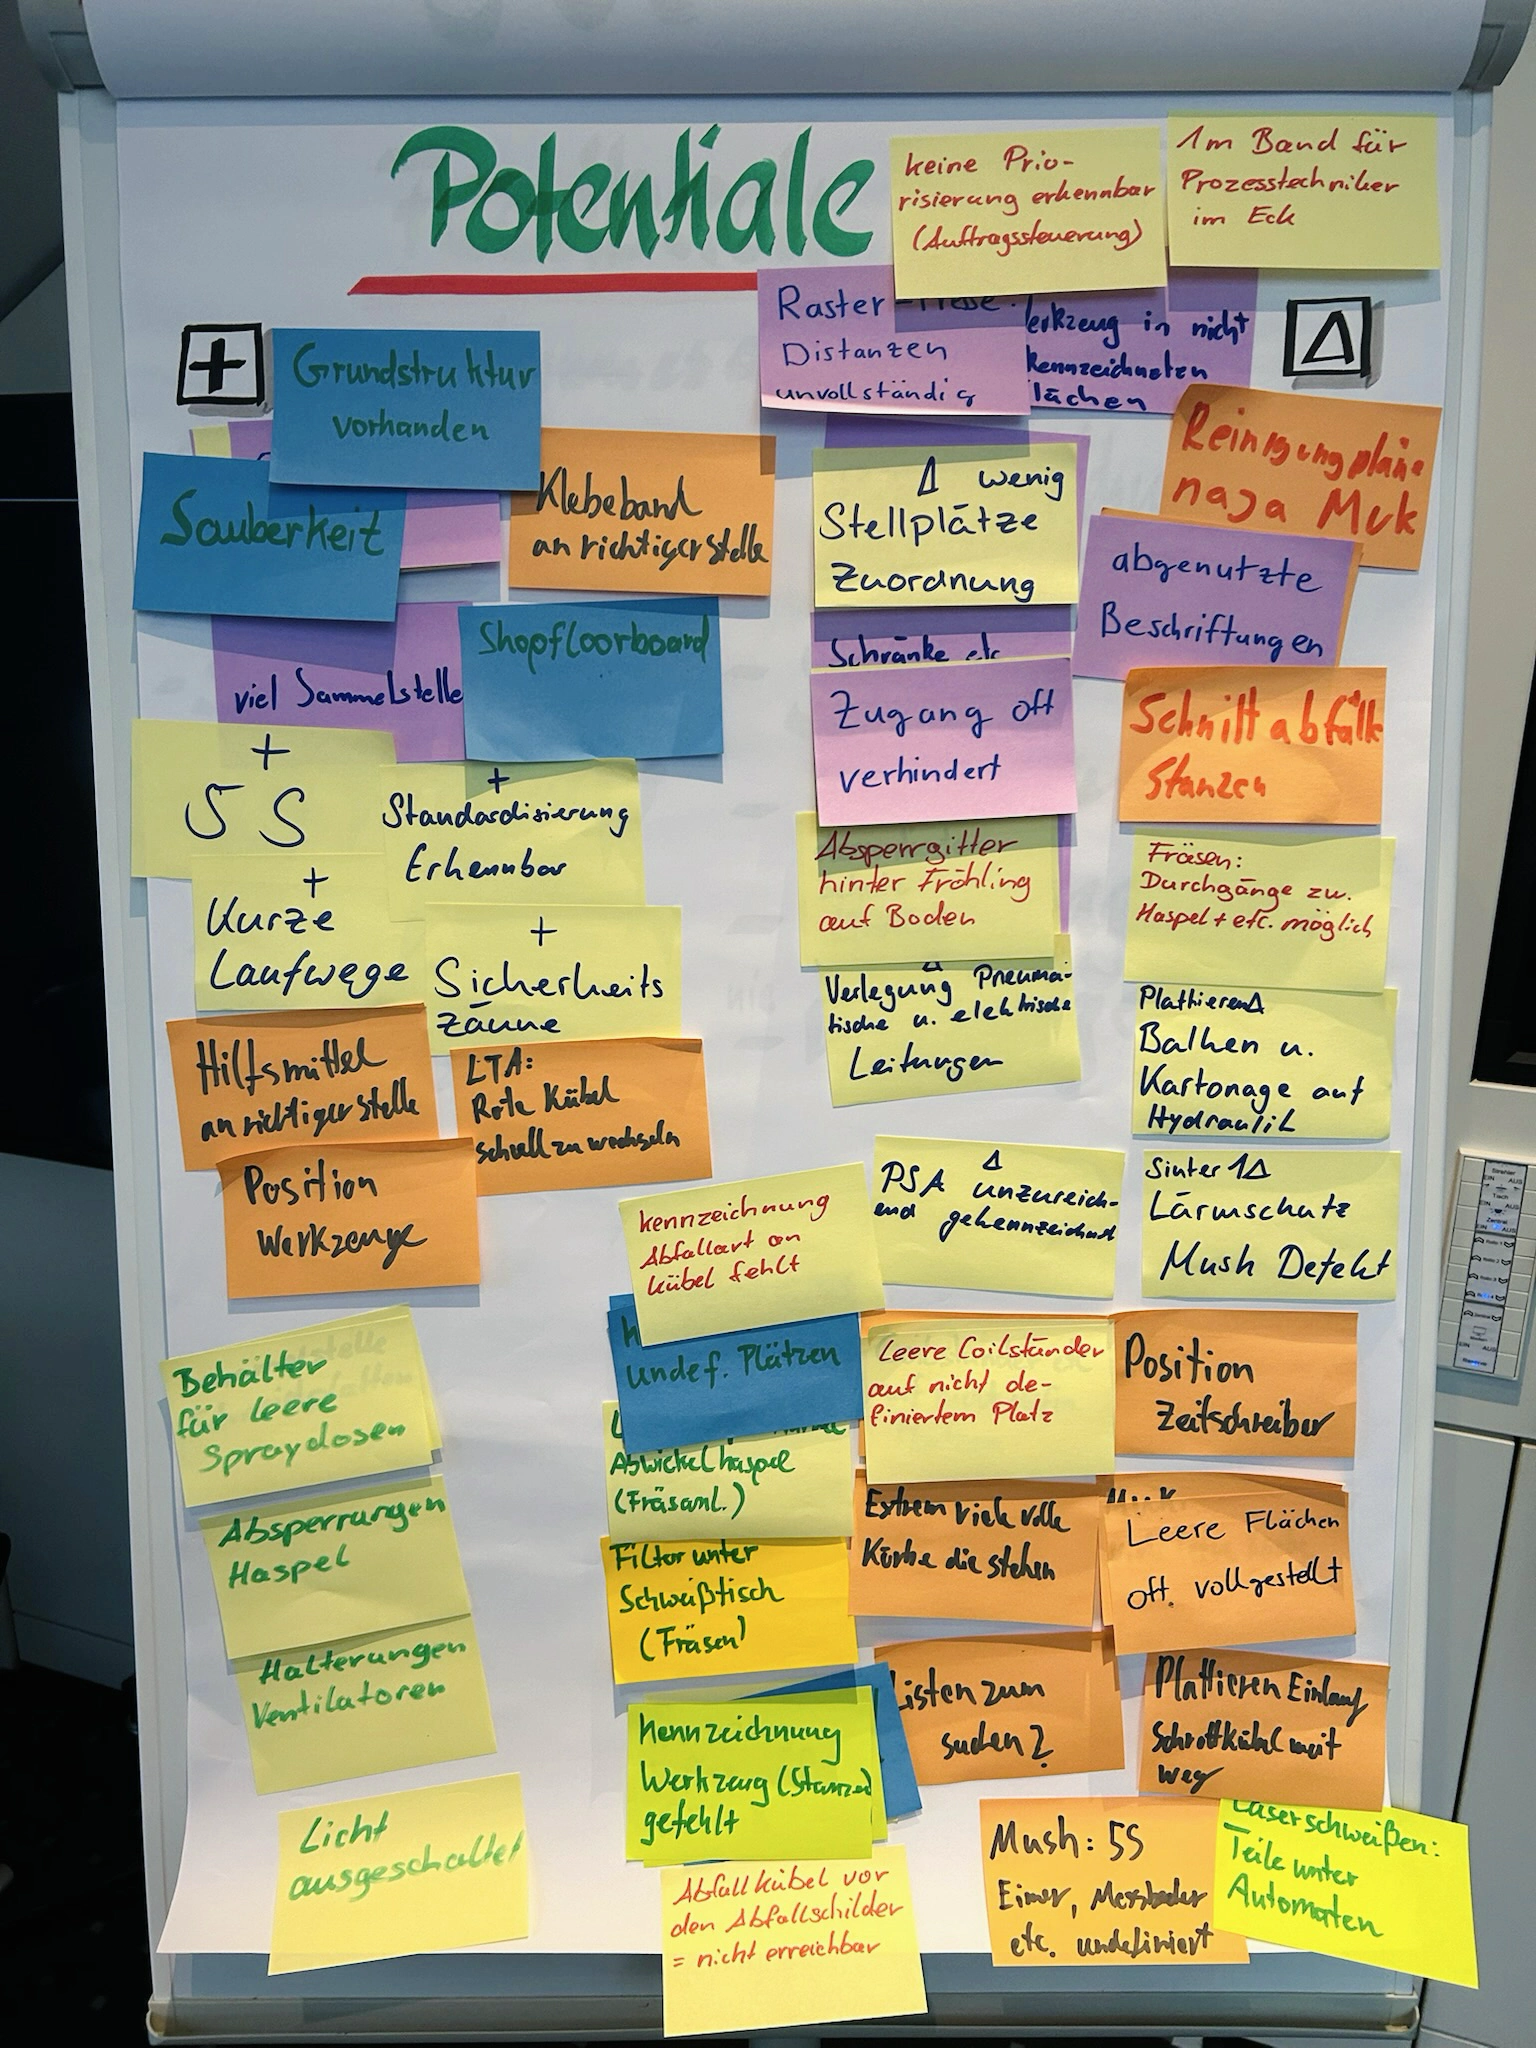 Potentiale
keine Prio-
risierung erkennbar
(Auftragssteuerung)
1m Band für
Prozesstechniker
im Eck
+
Δ
Raster
Distanzen
unvollständig
erkzeug in nicht
kennzeichneten
lächen
Grundstruktur
vorhanden
Sauberkeit
Klebeband
an richtiger Stelle
viel Sammelstelle
Shopfloorboard
+
5 S
+
Standardisierung
Erkennbar
+
Kurze
Laufwege
+
Sicherheits
zäune
Hilfsmittel
an richtiger Stelle
LTA:
Rote Kübel
schnell zu wechseln
Position
Werkzeuge
Δ wenig
Stellplätze
Zuordnung
Schränke etc
Zugang oft
verhindert
Absperrgitter
hinter Fröhling
auf Boden
Δ
Verlegung Pneuma-
tische u. elektrische
Leitungen
Reinigungspläne
naja Muk
abgenutzte
Beschriftungen
Schnittabfälle
Stanzen
Fräsen:
Durchgänge zw.
Haspel + etc. möglich
Plattieren Δ
Balken u.
Kartonage auf
Hydraulik
Δ
PSA unzureich-
end gekennzeichnet
Sinter 1Δ
Lärmschutz
Mush Defekt
kennzeichnung
Abfallart an
kübel fehlt
undef. Plätzen
Abwickelhaspel
(Fräsanl.)
Filter unter
Schweißtisch
(Fräsen)
Kennzeichnung
Werkzeug (Stanzen)
gefehlt
Abfallkübel vor
den Abfallschilder
= nicht erreichbar
Leere Coilständer
auf nicht de-
finiertem Platz
Extrem viele volle
Körbe die stehen
Listen zum
suchen?
Position
Zeitschreiber
Leere Flächen
oft vollgestellt
Plattieren Einlauf
Schrottkübel weit
weg
Mush: 5S
Eimer, Messbecher
etc. undefiniert
Laserschweißen:
Teile unter
Automaten
Behälter
für leere
Spraydosen
Absperrungen
Haspel
Halterungen
Ventilatoren
Licht
ausgeschaltet